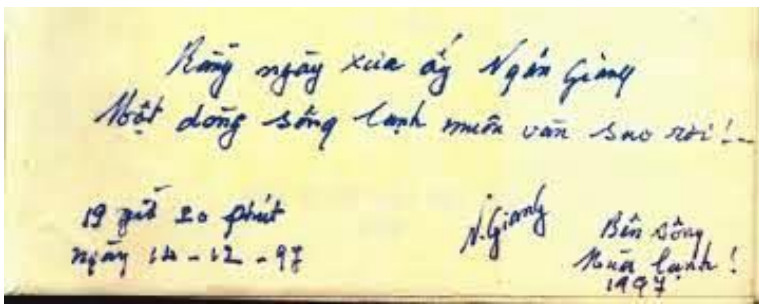 Rằng ngày xưa ấy Ngân Giang
Một dòng sông lạnh muôn vàn sao rơi!..
19 giờ 20 phút
ngày 14-12-97
N.Giang
Bên sông
Mùa lạnh!
1997